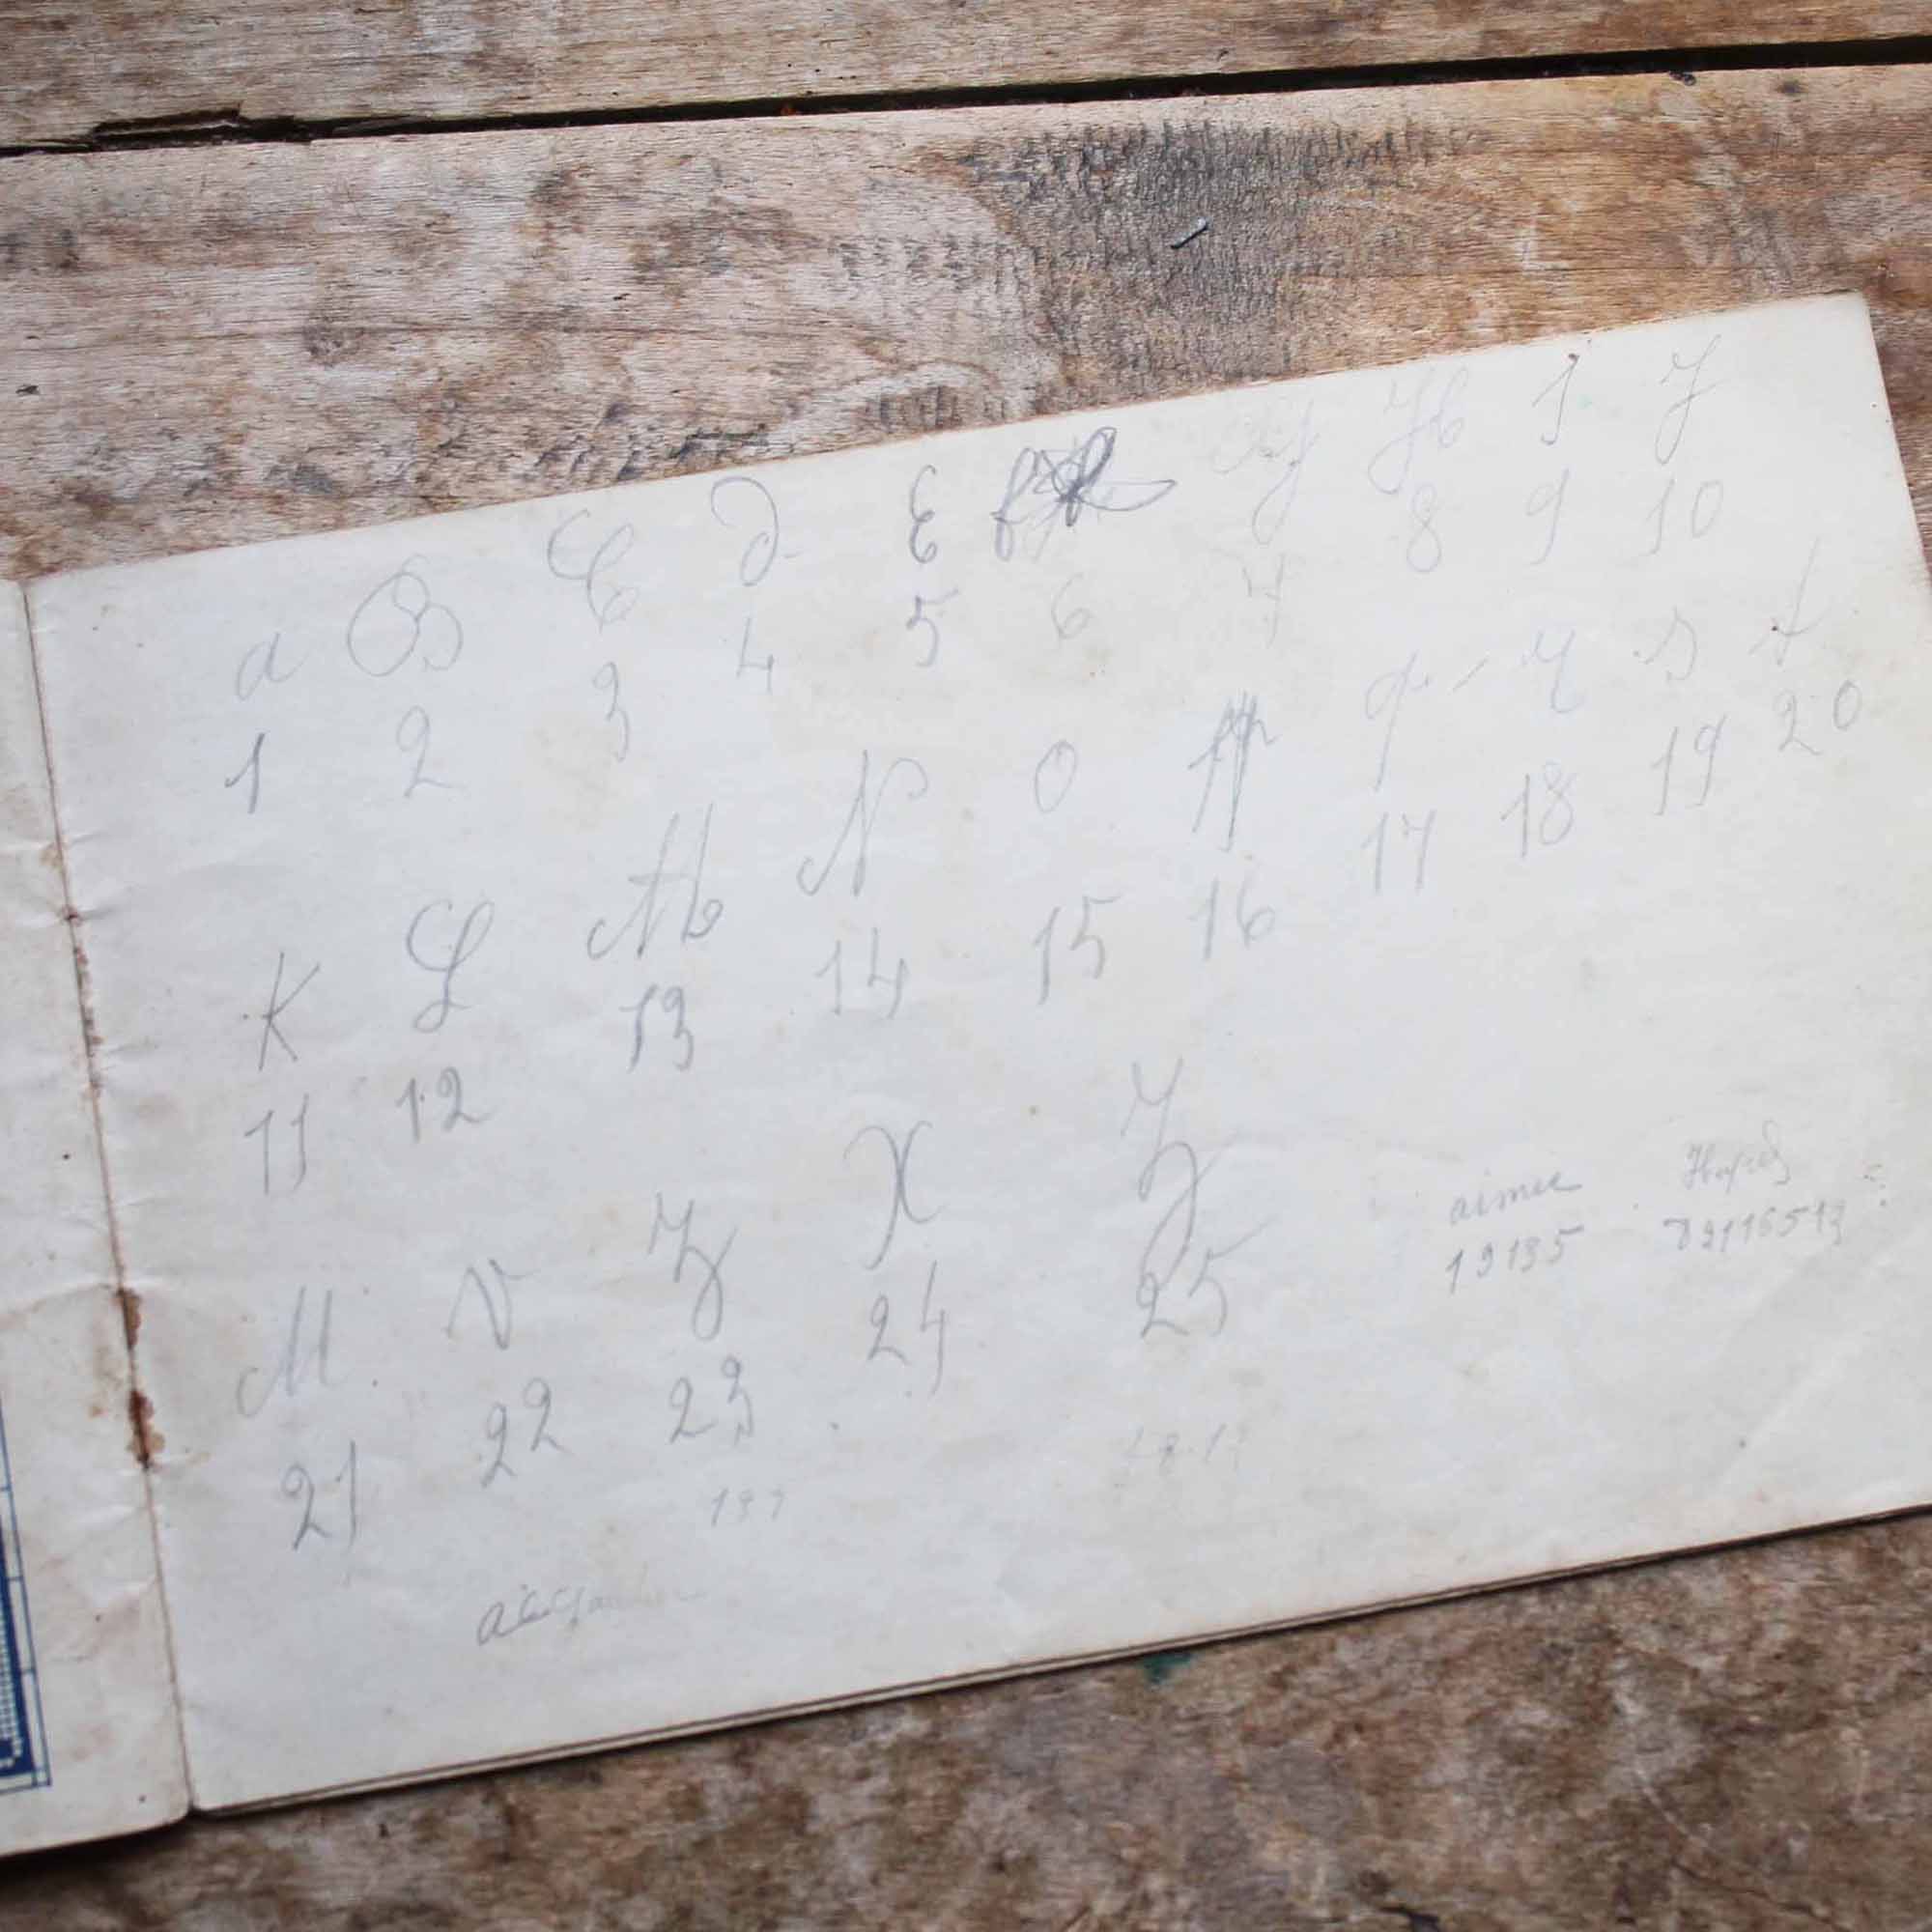 a B C d E f G H I J
1 2 3 4 5 6 7 8 9 10
K L M N O p q r s t
11 12 13 14 15 16 17 18 19 20
U V Y X Z
21 22 23 24 25
aimee
19135
197